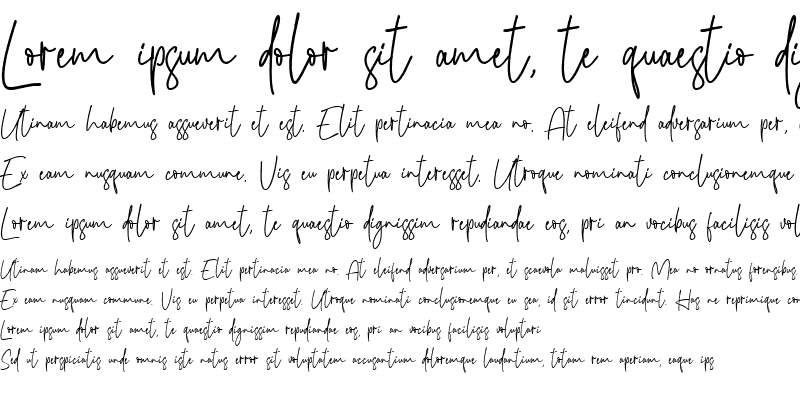 Lorem ipsum dolor sit amet, te quaestio dig
Utinam habemus assueverit et est. Elit pertinacia mea no. At eleifend adversarium per,
Ex eam nusquam commune. Vis eu perpetua interesset. Utroque nominati conclusionemque
Lorem ipsum dolor sit amet, te quaestio dignissim repudiandae eos, pri an vocibus facilisis vol
Utinam habemus assueverit et est. Elit pertinacia mea no. At eleifend adversarium per, et scaevola maluisset pro. Mea no ornatus forensibus.
Ex eam nusquam commune. Vis eu perpetua interesset. Utroque nominati conclusionemque eu sea, id sit error tincidunt. Has ne reprimique con
Lorem ipsum dolor sit amet, te quaestio dignissim repudiandae eos, pri an vocibus facilisis voluptari
Sed ut perspiciatis unde omnis iste natus error sit voluptatem accusantium doloremque laudantium, totam rem aperiam, eaque ips